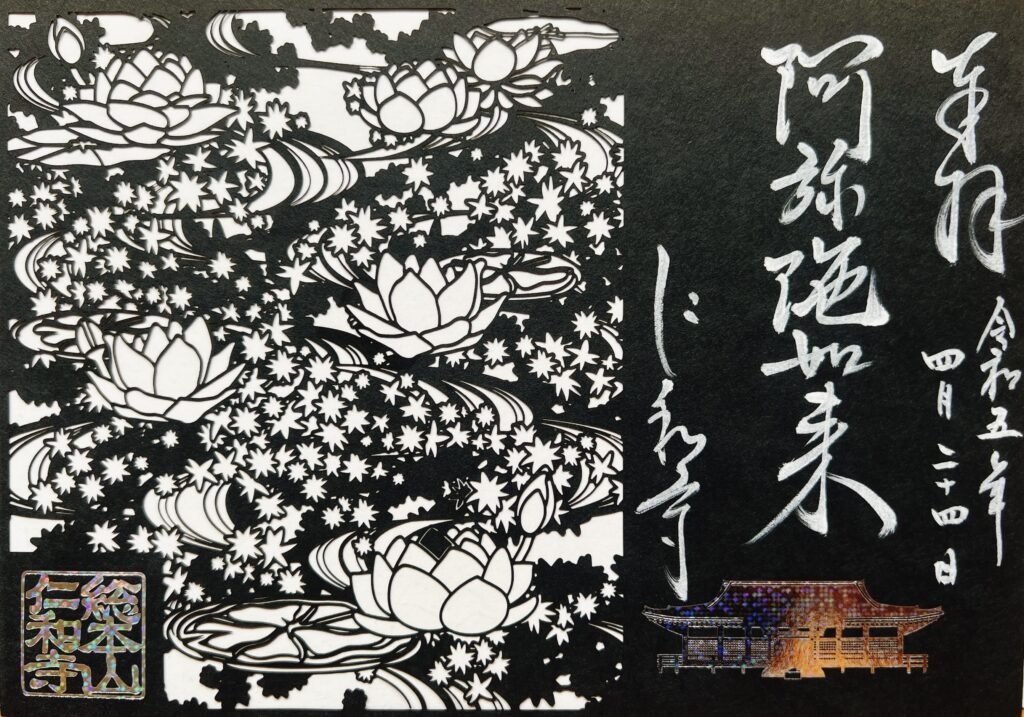 奉拝
令和五年
四月二十四日
阿弥陀如来
仁和寺
総本山
仁和寺